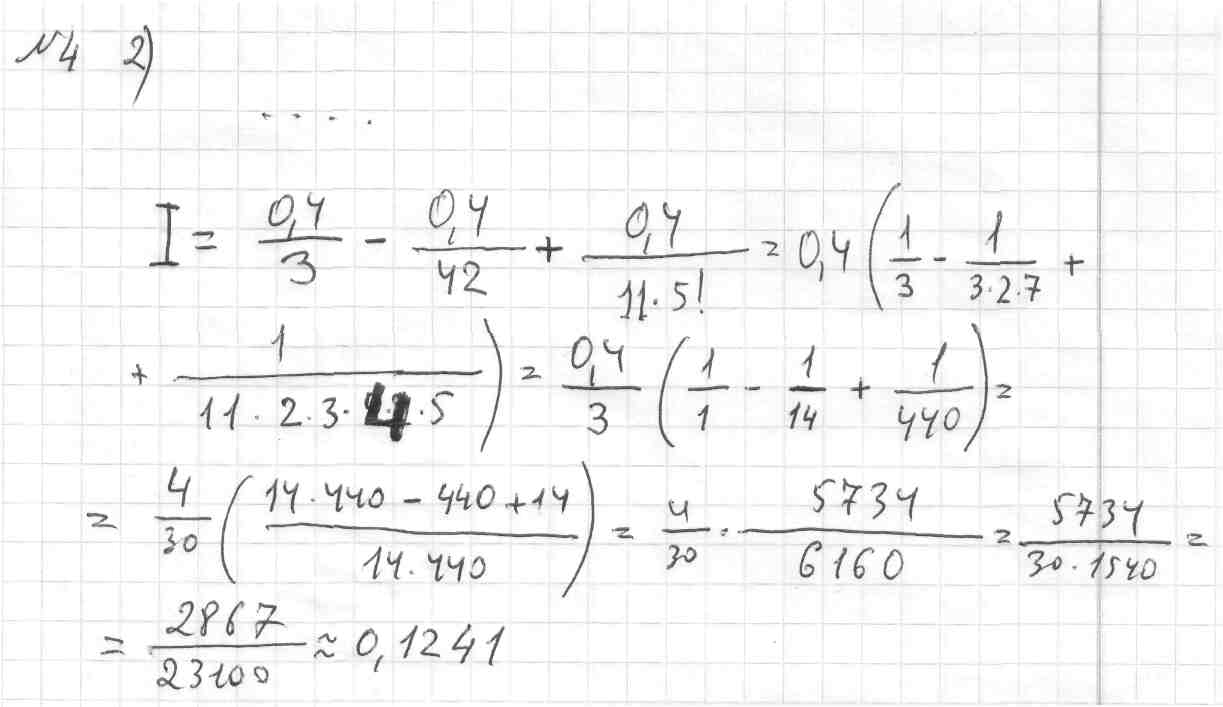 №4 2)
. . . .
I = 0,4/3 - 0,4/42 + 0,4/(11·5!) = 0,4 (1/3 - 1/(3·2·7) +
+ 1/(11·2·3·4·5)) = 0,4/3 (1/1 - 1/14 + 1/440) =
= 4/30 ((14·440 - 440 + 14)/(14·440)) = 4/30 · 5734/6160 = 5734/(30·1540) =
= 2867/23100 ≈ 0,1241